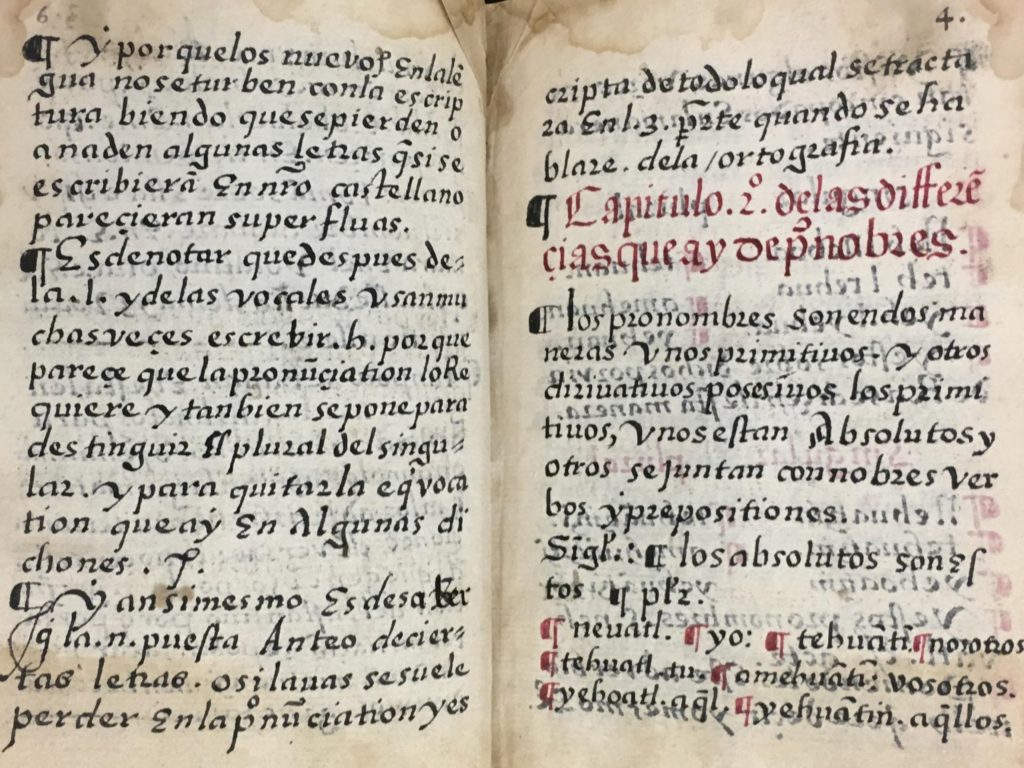 6
¶ Y porquelos nuevos Enlalẽ
gua noseturben conla escrip
tura biendo quesepierden o
añaden algunas letras q̃sise
escribierã En nr̃o castellano
pareçieran superfluas.
¶ Esdenotar quedespues de-
la .l. ydelas vocales vsanmu
chasveçes escrebir .h. porque
pareçe que lapronũçiation loRe
quiere y tanbien seponepara
destinguir El plural delsingu-
lar. ypara quitarla eq̃voca
tion que ay En Algunas di
chones.
¶ Y ansimesmo Esdesaber
q̃ la .n. puesta Anteo decier-
tas letras. osilauas sesuele
perder Enla p̃nũciation yes
4.
cripta detodoloqual setracta
ra Enl.3. p̃rte quando seha
blare. dela /ortografia.
¶ Capitulo .2º. delasdifferẽ
çias que ay de p̃nobres.
¶ los pronombres sonendos ma
neras Vnos primitiuos. Y otros
dirivatiuos posesivos los primi
tiuos, Vnos estan Absolutos y
otros sejuntan connobres ver
bos yprepositiones.
Sigl.: ¶ los absolutos son Es
tos ¶ plr.
¶ nevatl. ¶ yo: ¶ tehuãti. ¶ nosotros
¶ tehuatl. tu. ¶ amehuãti: vosotros.
¶ yehoatl. aq̃l. ¶ yehuãtin. aq̃llos.